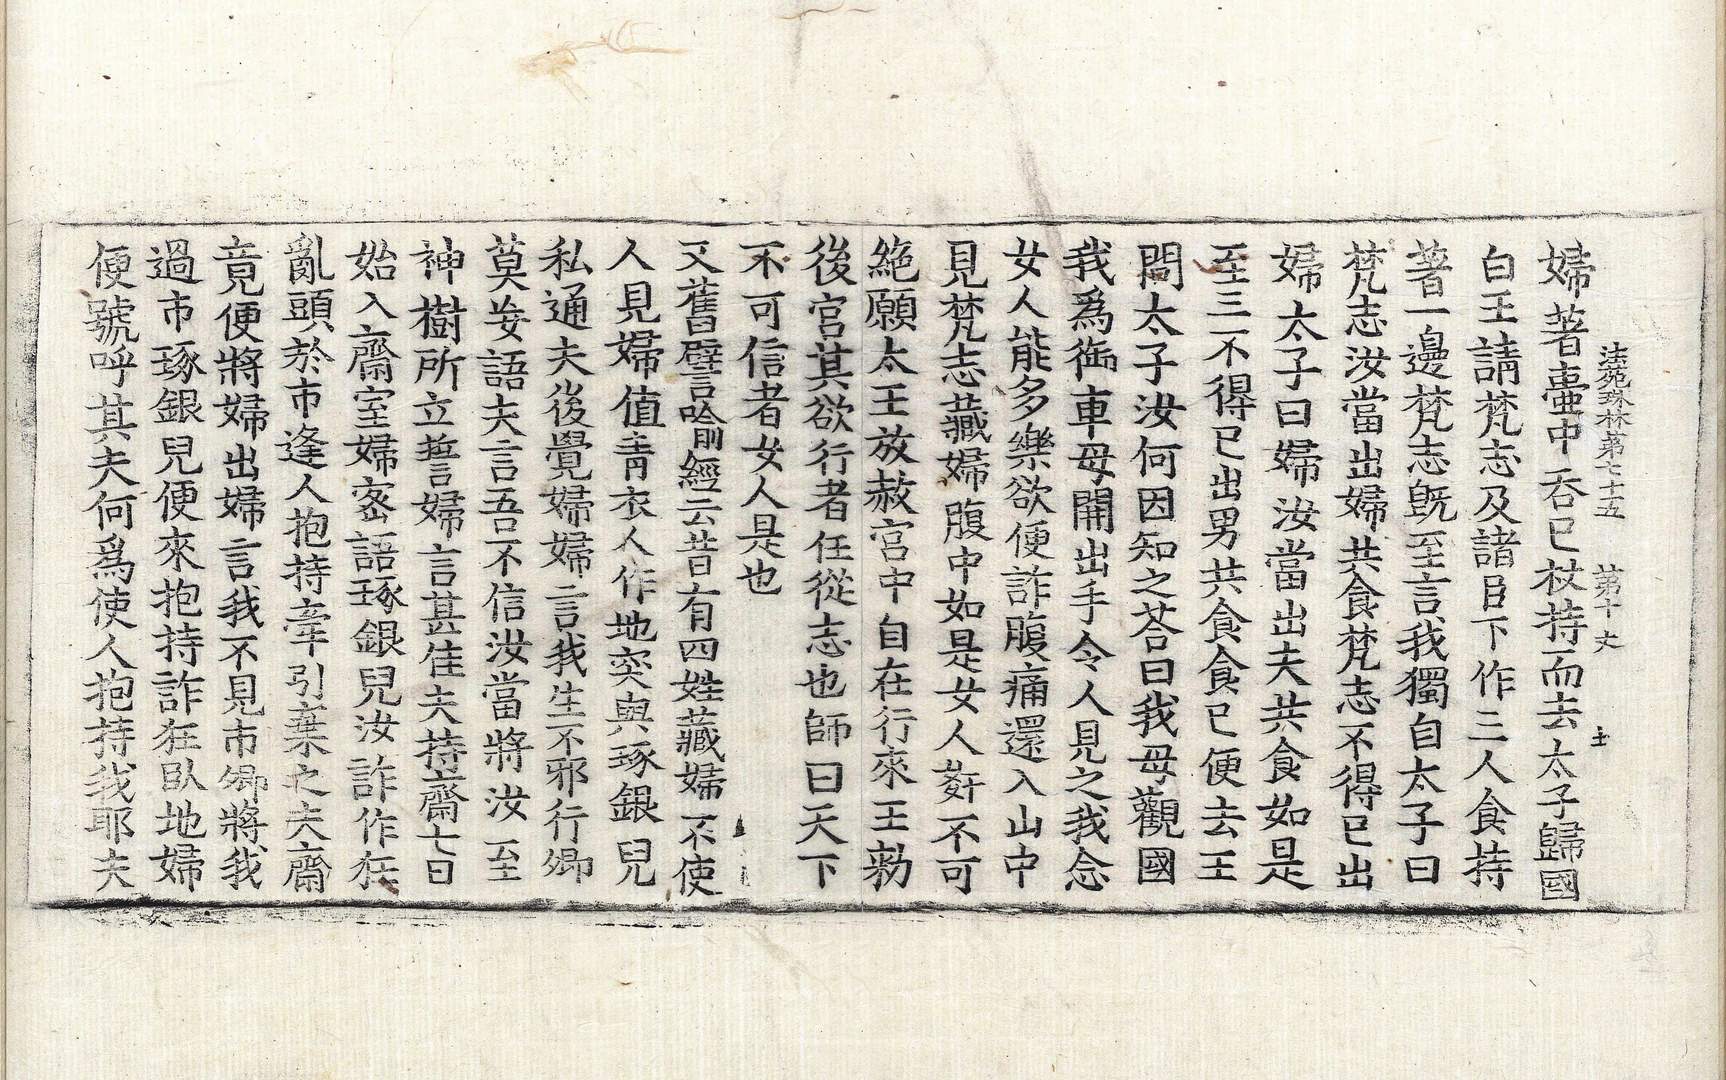 法苑珠林第七十五 第十丈 士
婦著壷中吞已杖持而去太子歸國
白王請梵志及諸臣下作三人食持
著一邊梵志旣至言我獨自太子曰
梵志汝當出婦共食梵志不得已出
婦太子曰婦汝當出夫共食如是
至三不得已出男共食食已便去王
問太子汝何因知之荅曰我母觀國
我爲御車母開出手令人見之我念
女人能多樂欲便詐腹痛還入山中
見梵志藏婦腹中如是女人姧不可
絶願太王放赦宫中自在行來王勑
後宫其欲行者任從志也師曰天下
不可信者女人是也
又舊譬喻經云昔有四姓藏婦不使
人見婦值青衣人作地突與琢銀兒
私通夫後覺婦婦言我生不邪行卿
莫妄語夫言吾不信汝當將汝至
神樹所立誓婦言甚佳夫持齋七日
始入齋室婦宻語琢銀兒汝詐作狂
亂頭於市逢人抱持牽引棄之夫齋
竟便將婦出婦言我不見市卿將我
過市琢銀兒便來抱持詐狂臥地婦
便號呼其夫何爲使人抱持我耶夫